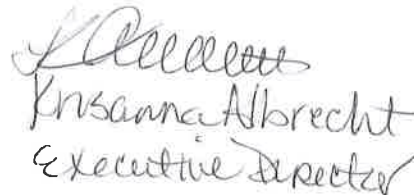 Krisanna Albrecht
Executive Director